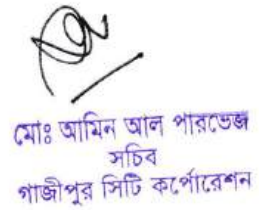 মোঃ আমিন আল পারভেজ
সচিব
গাজীপুর সিটি কর্পোরেশন